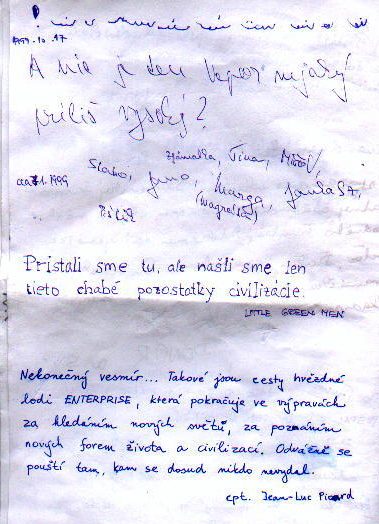 1999.10.17
A nie je ten Vepor nejaký
príliš vysoký?
Slavo, Juno, Marga, 
(Magratka)
Pristali sme tu, ale našli sme len
tieto chabé pozostatky civilizácie.
LITTLE GREEN MEN
Nekonečný vesmír... Takové jsou cesty hvězdné
lodi ENTERPRISE, která pokračuje ve výpravách
za hledáním nových světů, za poznáním
nových forem života a civilizací. Odvážně se
pouští tam, kam se dosud nikdo nevydal.
cpt. Jean-Luc Picard